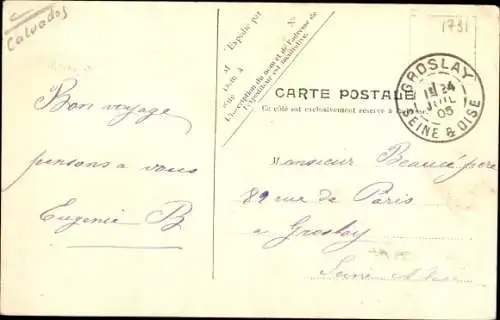 Calvados
1791
Expédié par
M
Nº
Demt à
Rue
L'inscription du nom et de l'adresse de
l'Expéditeur est facultative.
CARTE POSTALE
Ce côté est exclusivement réservé à
GROSLAY
24
JUIL
05
SEINE & OISE
Bon voyage
pensons a vous
Eugenie B
Monsieur Beaucé père
89 rue de Paris
a Groslay
Seine